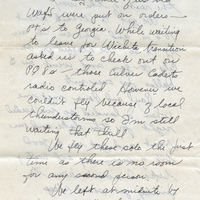 Wafs were put on orders —
PT's to Georgia. While waiting
to leave for Wichita, Transition
asked us to check out on
PQ 8's those Culver Cadets
radio controled. However we
couldn't fly because of local
thunderstorms so I'm still
waiting that thrill.
We fly these solo the first
time as there is no room
for any second person.
We left at midnite by